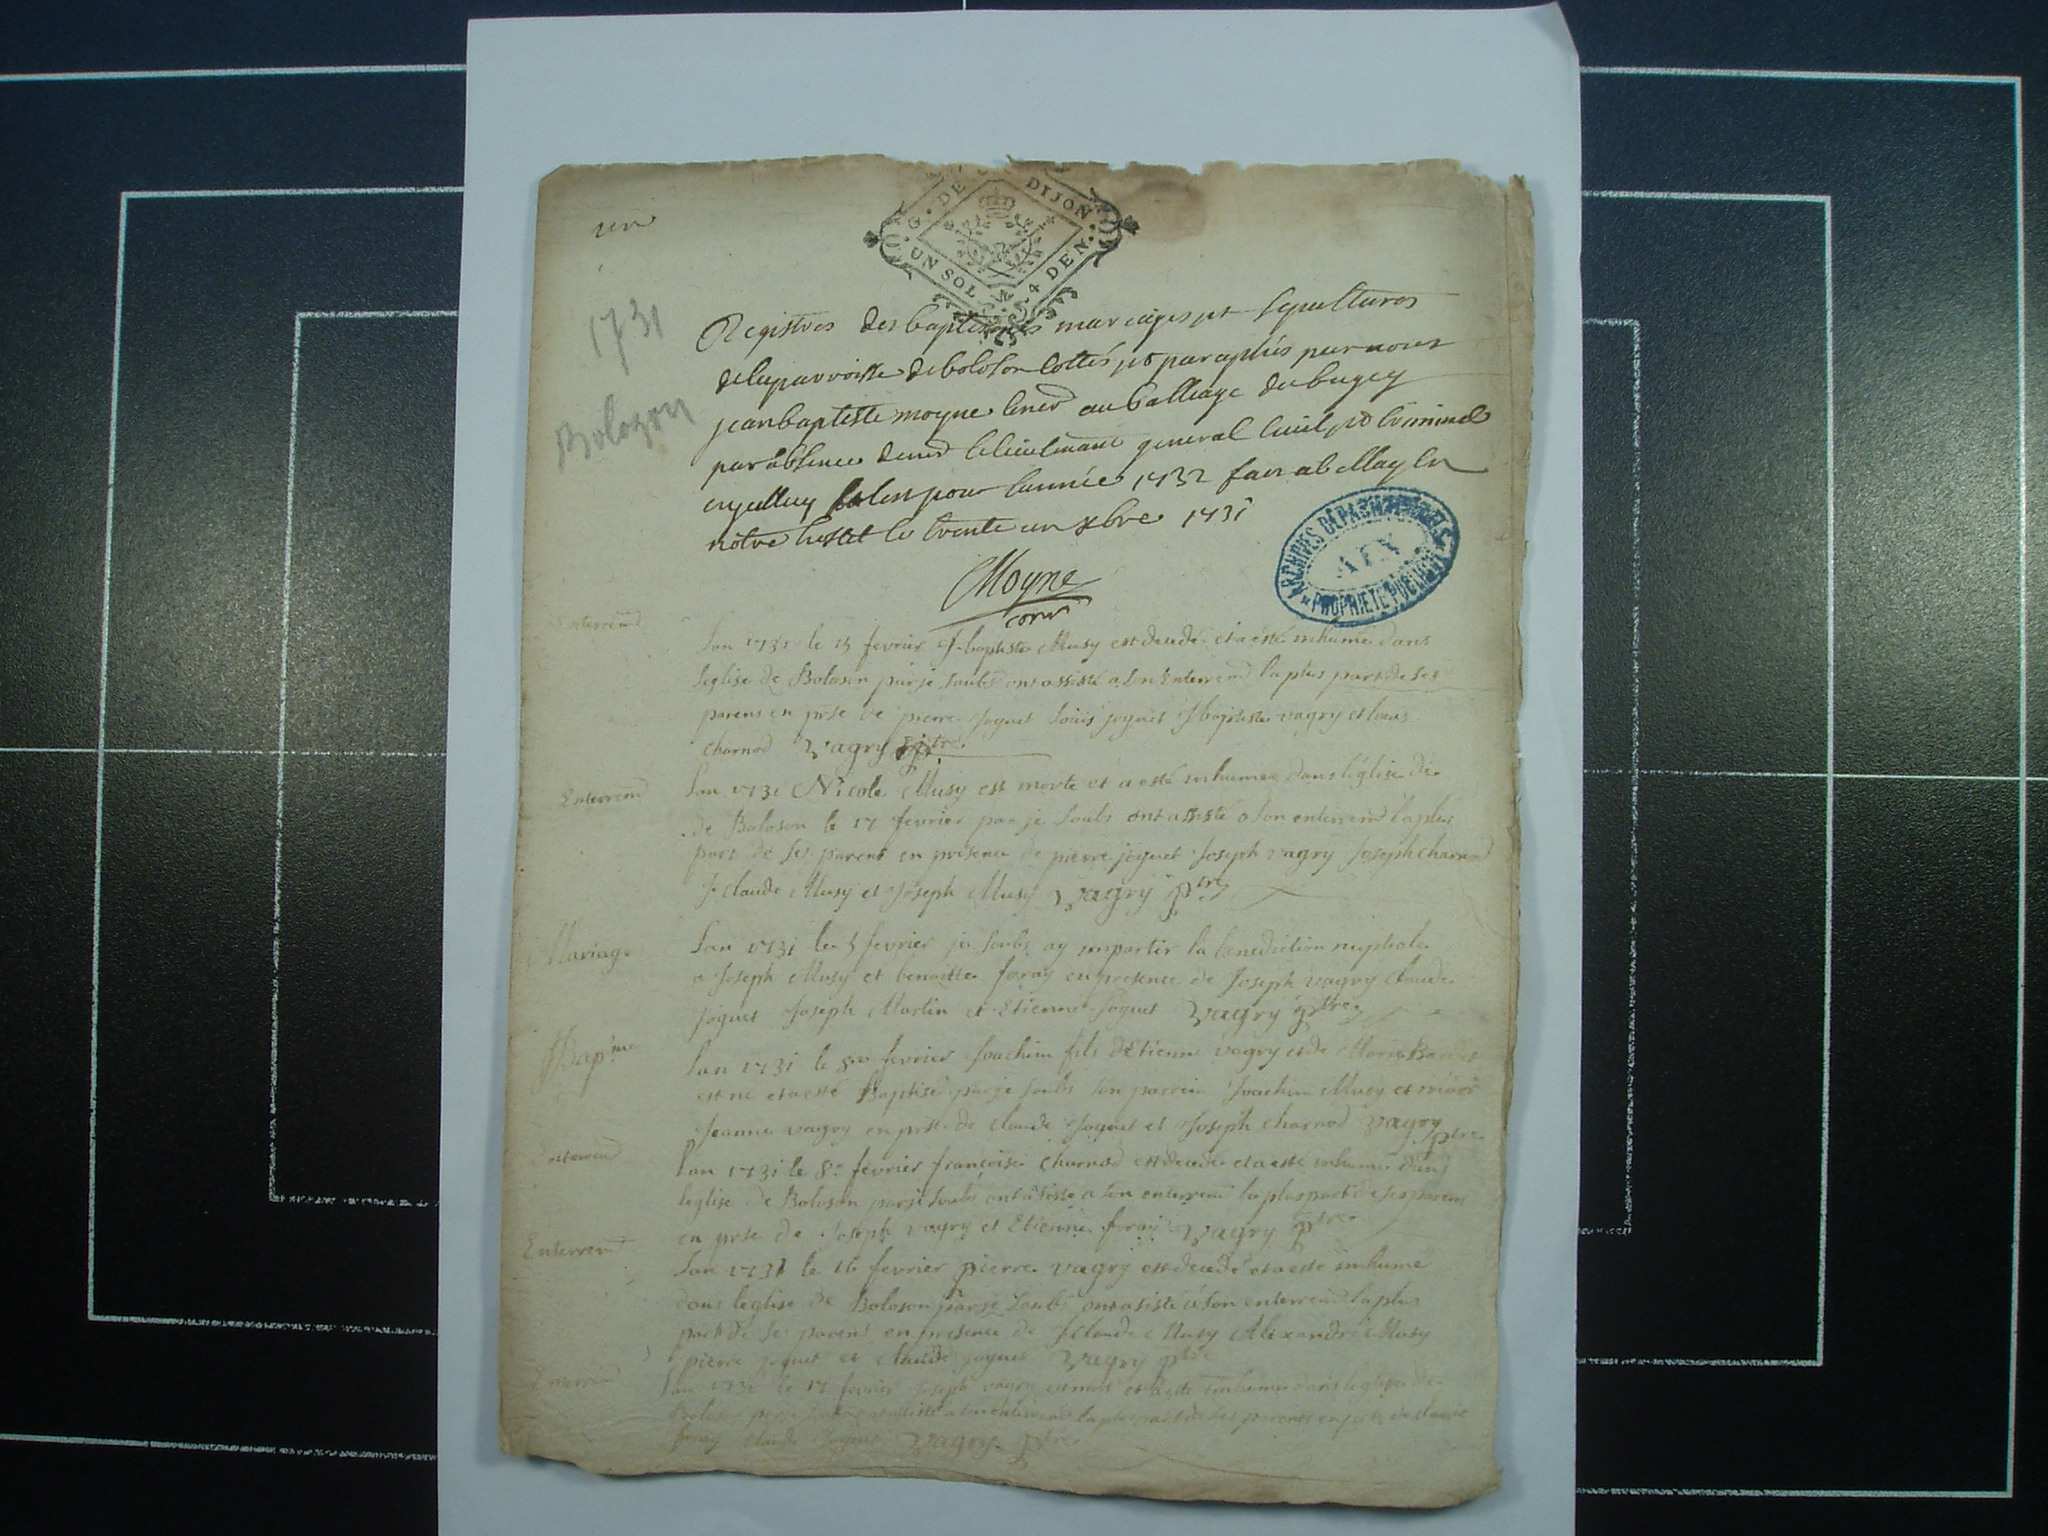 un
G. DE DIJON
UN SOL 4 DEN.
1731
Bolozon
Registres des baptesmes mariages et sepultures
de la parroisse de boloson cottés et paraphés par nous
jean baptiste moyne au balliage du bugey
par absence de le lieutenant general civil et criminel
pour l'année 1732 fait a bellay en
notre hostel le trente un xbre 1731
Moyne
ARCHIVES DÉPARTEMENTALES
AIN
PROPRIÉTÉ PUBLIQUE
Enterremt
Lan 1731 le 15 fevrier J. baptiste Musy est decede et a esté inhumé dans
leglise de Boloson par je soubs ont assisté a son Enterremt la plus part de ses
parens en pnse de pierre Joguet Louis joguet J baptiste vagry et louis
charnod Vagry ptre
Enterremt
Lan 1731 Nicole Musy est morte et a esté inhumee dans l'église de
de Boloson le 17 fevrier par je soubs ont assisté a son enterremt la plus
part de ses parens en presence de pierre joguet Joseph vagry Joseph charnod
J. claude Musy et Joseph Musy Vagry ptre
Mariage
Lan 1731 le 5 fevrier je soubs ay impartir la benediction nuptiale
a Joseph Musy et benoitte foray en presence de Joseph vagry claude
joguet Joseph Martin et Etienne Joguet Vagry ptre
Bapme
Lan 1731 le 8 fevrier Joachim fils d'Etienne vagry et de Marie
est né et a esté Baptisé par je soubs son parrein Joachim Musy et
Jeanne vagry en pnse de claude Joguet et Joseph charnod Vagry ptre
Enterremt
Lan 1731 le 8e fevrier françoise charnod est decede et a esté inhumee dans
leglise de Boloson par je soubs ont assisté a son enterremt la plus part de ses parens
en pnse de Joseph vagry et Etienne foray Vagry ptre
Enterremt
Lan 1731 le 16 fevrier pierre vagry est decedé et a esté inhumé
dans leglise de Boloson par je soubs ont asisté a son enterremt la plus
part de ses parens en presence de J claude Musy Alexandre Musy
pierre joguet et claude joguet Vagry ptre
Enterremt
Lan 1731 le 17 fevrier Joseph vagry est mort et a esté inhumé dans leglise de
Boloson par je soubs ont assisté a son enterremt la plus part de ses parents en pnse de
foray claude Joguet Vagry ptre